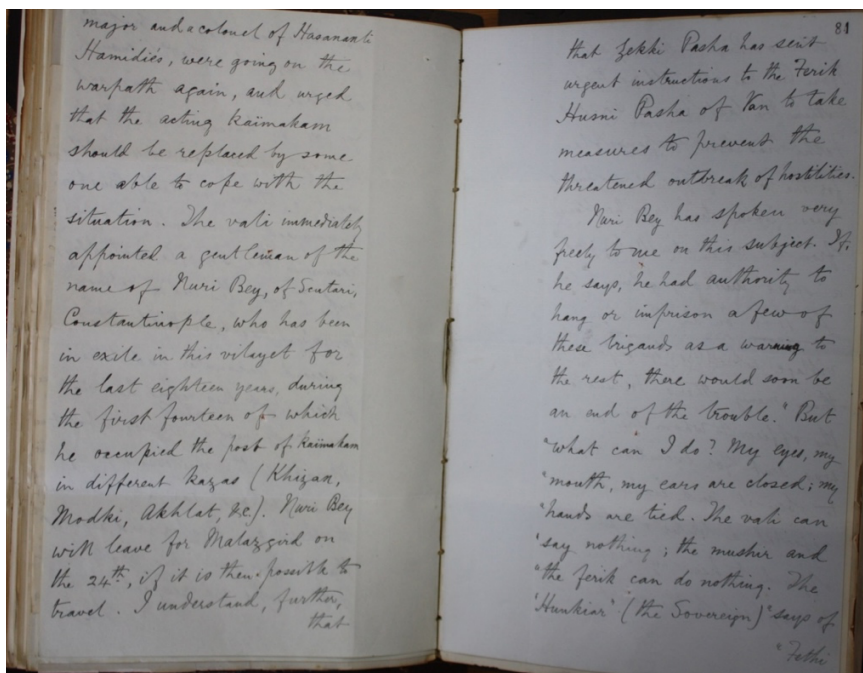 major and a colonel of Hasananli
Hamidiés, were going on the
warpath again, and urged
that the acting kaïmakam
should be replaced by some
one able to cope with the
situation. The vali immediately
appointed a gentleman of the
name of Nuri Bey, of Scutari,
Constantinople, who has been
in exile in this vilayet for
the last eighteen years, during
the first fourteen of which
he occupied the post of kaïmakam
in different kazas (Khizan,
Modki, Akhlat, &c). Nuri Bey
will leave for Malazgird on
the 24th, if it is then possible to
travel. I understand, further,
that
81
that Zekki Pasha has sent
urgent instructions to the Ferik
Husni Pasha of Van to take
measures to prevent the
threatened outbreak of hostilities.
Nuri Bey has spoken very
freely to me on this subject. If,
he says, he had authority to
hang or imprison a few of
these brigands as a warning to
the rest, there would soon be
an end of the trouble." But
"what can I do? My eyes, my
"mouth, my ears are closed; my
"hands are tied. The vali can
"say nothing; the mushir and
"the ferik can do nothing. The
"Hunkiar" (the Sovereign) "says of
"Fethi